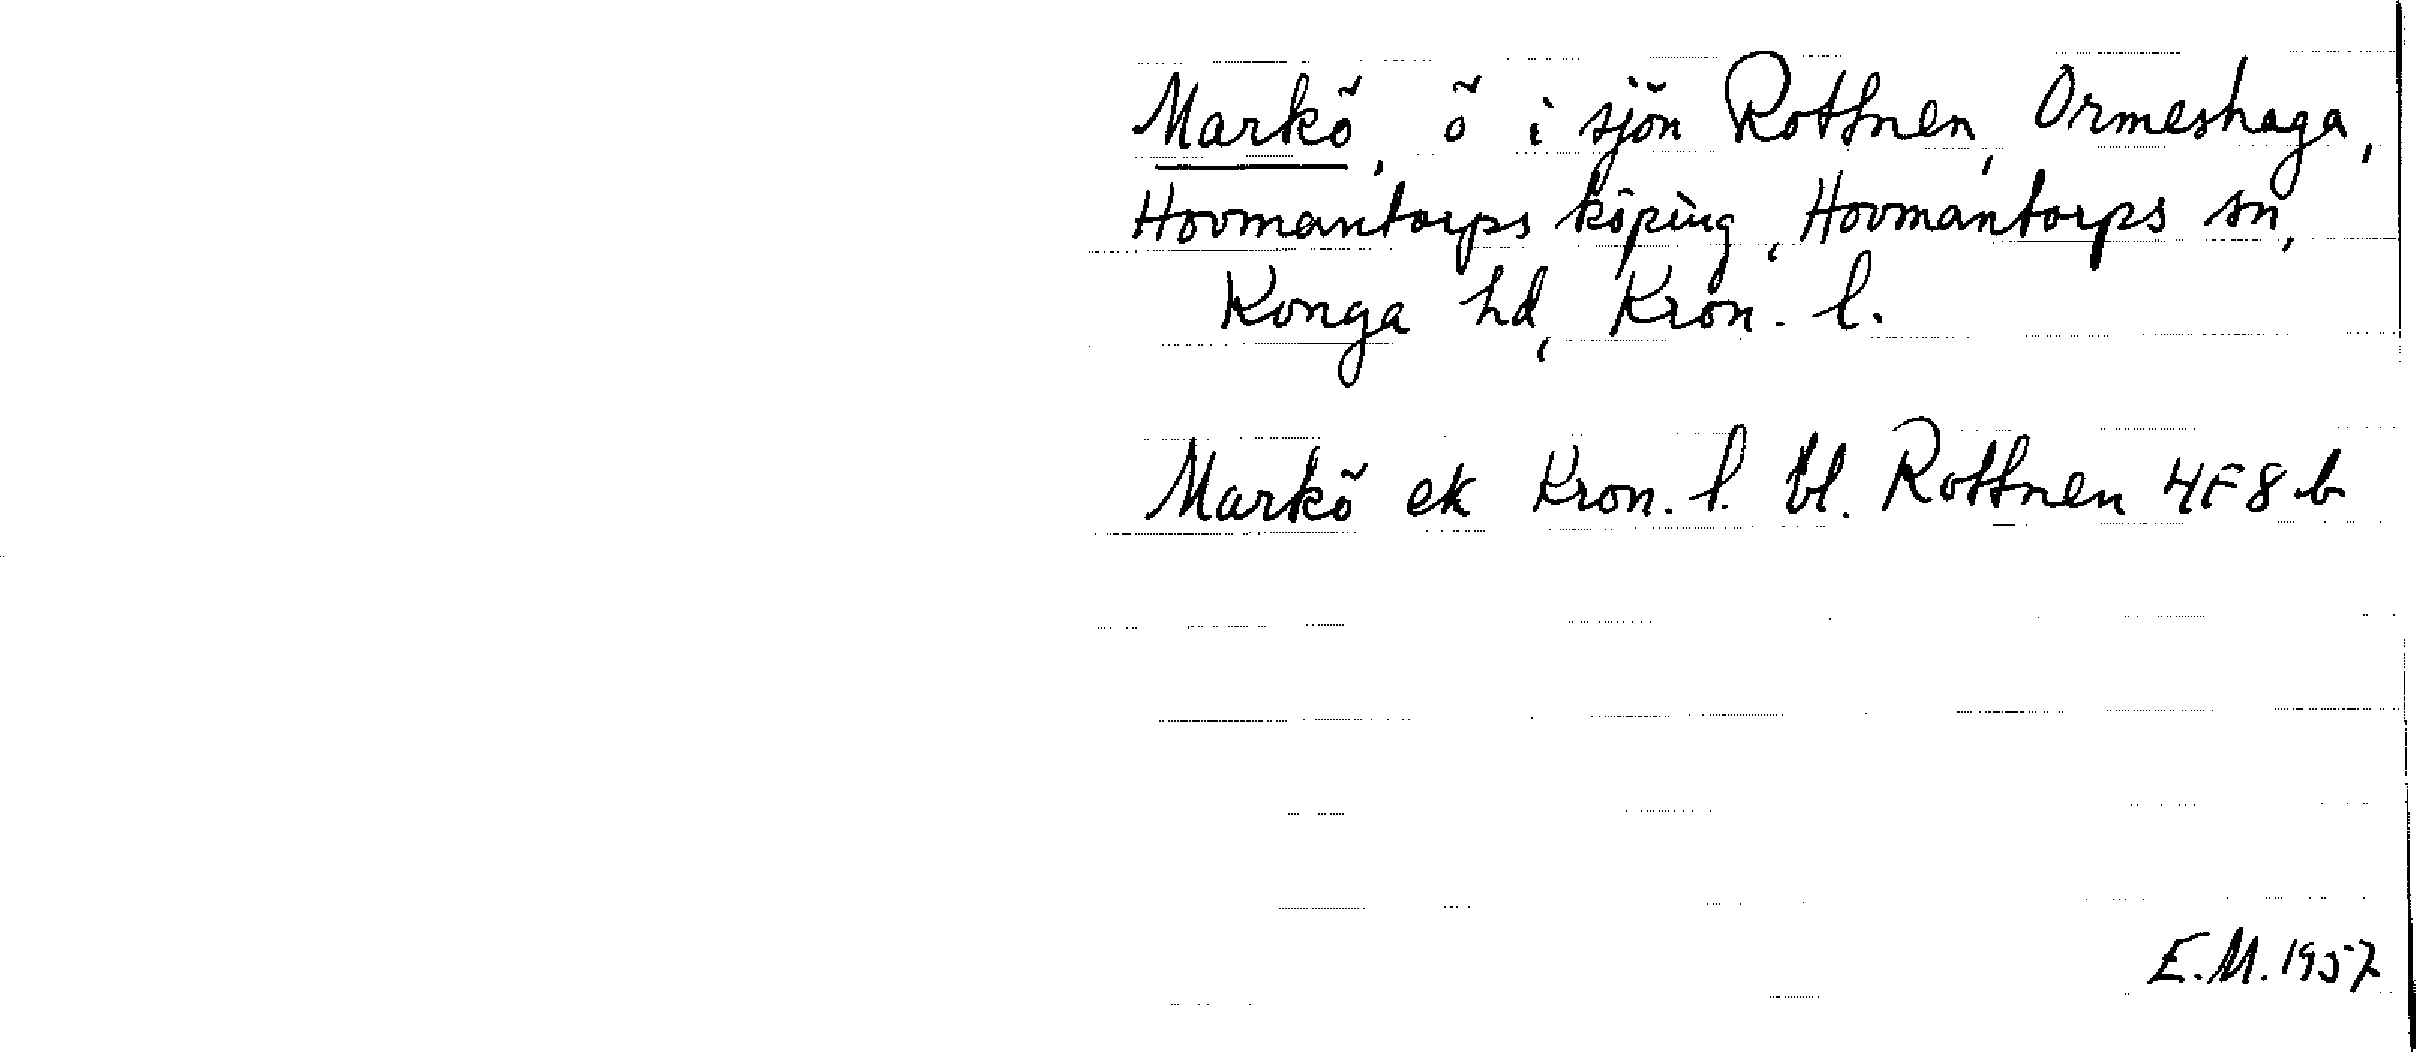 Markö, ö i sjön Rottnen, Ormeshaga,
Hovmantorps köping, Hovmantorps sn,
Konga hd, Kron. l.
Markö ek Kron. l. bl. Rottnen 4F8b
E.M. 1957